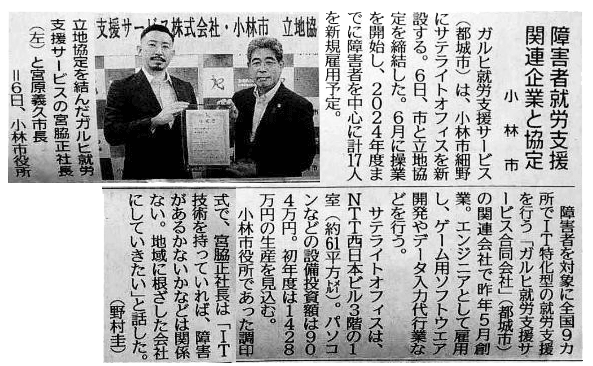 障害者就労支援
関連企業と協定
小林市
ガルヒ就労支援サービス
（都城市）は、小林市細野
にサテライトオフィスを新
設する。６日、市と立地協
定を締結した。６月に操業
を開始し、２０２４年度ま
でに障害者を中心に計１７人
を新規雇用予定。
支援サービス株式会社・小林市 立地協
立地協定を結んだガルヒ就労
支援サービスの宮脇正社長
（左）と宮原義久市長
＝６日、小林市役所
障害者を対象に全国９カ
所でＩＴ特化型の就労支援
を行う「ガルヒ就労支援サ
ービス合同会社」（都城市）
の関連会社で昨年５月創
業。エンジニアとして雇用
し、ゲーム用ソフトウエア
開発やデータ入力代行業な
どを行う。
サテライトオフィスは、
ＮＴＴ西日本ビル３階の１
室（約６１平方㍍）。パソコ
ンなどの設備投資額は９０
４万円。初年度は１４２８
万円の生産を見込む。
小林市役所であった調印
式で、宮脇正社長は「ＩＴ
技術を持っていれば、障害
があるかないかなどは関係
ない。地域に根ざした会社
にしていきたい」と話した。
（野村圭）